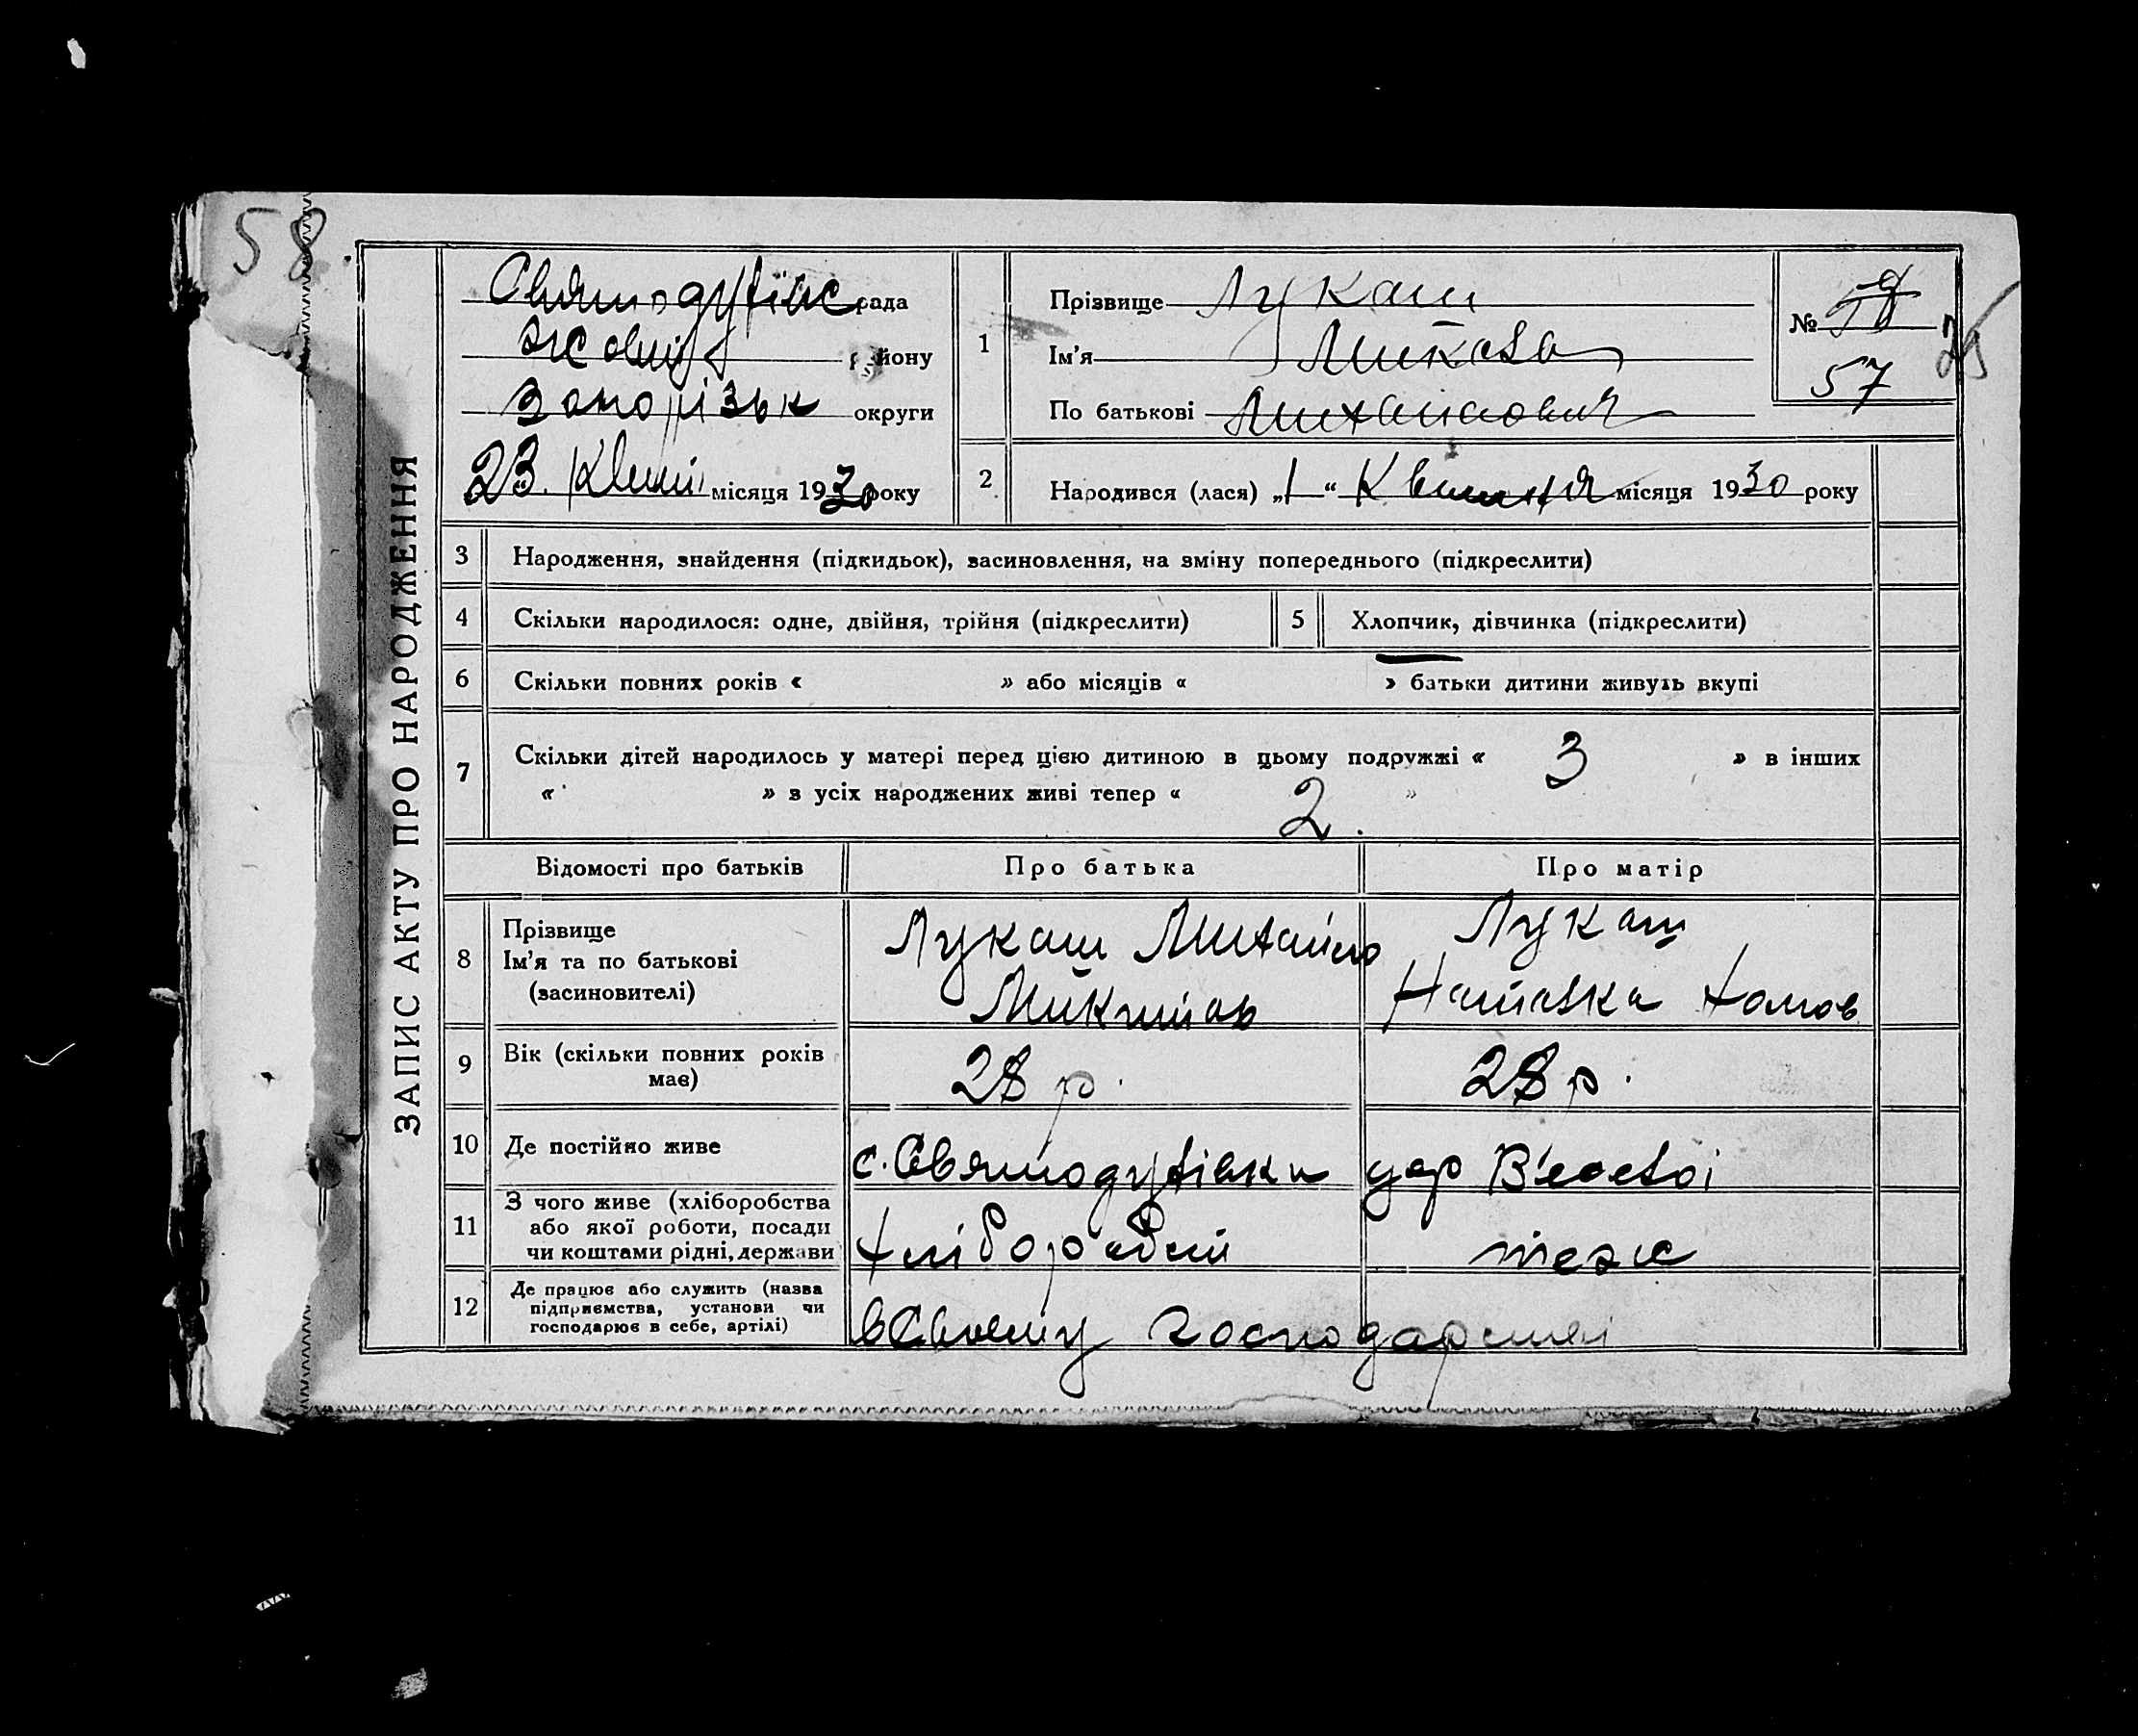 58
ЗАПИС АКТУ ПРО НАРОДЖЕННЯ
Святодухівс рада
району
Запорізьк округи
23. Квітн місяця 1930 року
1 Прізвище Лукаш
Ім'я Микола
По батькові Михайлович
№
57
2 Народився (лася) „1“ Квітня місяця 1930 року
3 Народження, знайдення (підкидьок), засиновлення, на зміну попереднього (підкреслити)
4 Скільки народилося: одне, двійня, трійня (підкреслити) 5 Хлопчик, дівчинка (підкреслити)
6 Скільки повних років « » або місяців « » батьки дитини живуть вкупі
7 Скільки дітей народилось у матері перед цією дитиною в цьому подружжі « 3 » в інших
« » з усіх народжених живі тепер « 2. »
Відомості про батьків Про батька Про матір
8 Прізвище
Ім'я та по батькові
(засиновителі)
Лукаш Михайло
Лукаш
Наталка Хомов
9 Вік (скільки повних років
має)
28 р. 28 р.
10 Де постійно живе с. Святодухівка
11 З чого живе (хліборобства
або якої роботи, посади
чи коштами рідні, держави
теж
12 Де працює або служить (назва
підприємства, установи чи
господарює в себе, артілі)
в Своєму господарстві